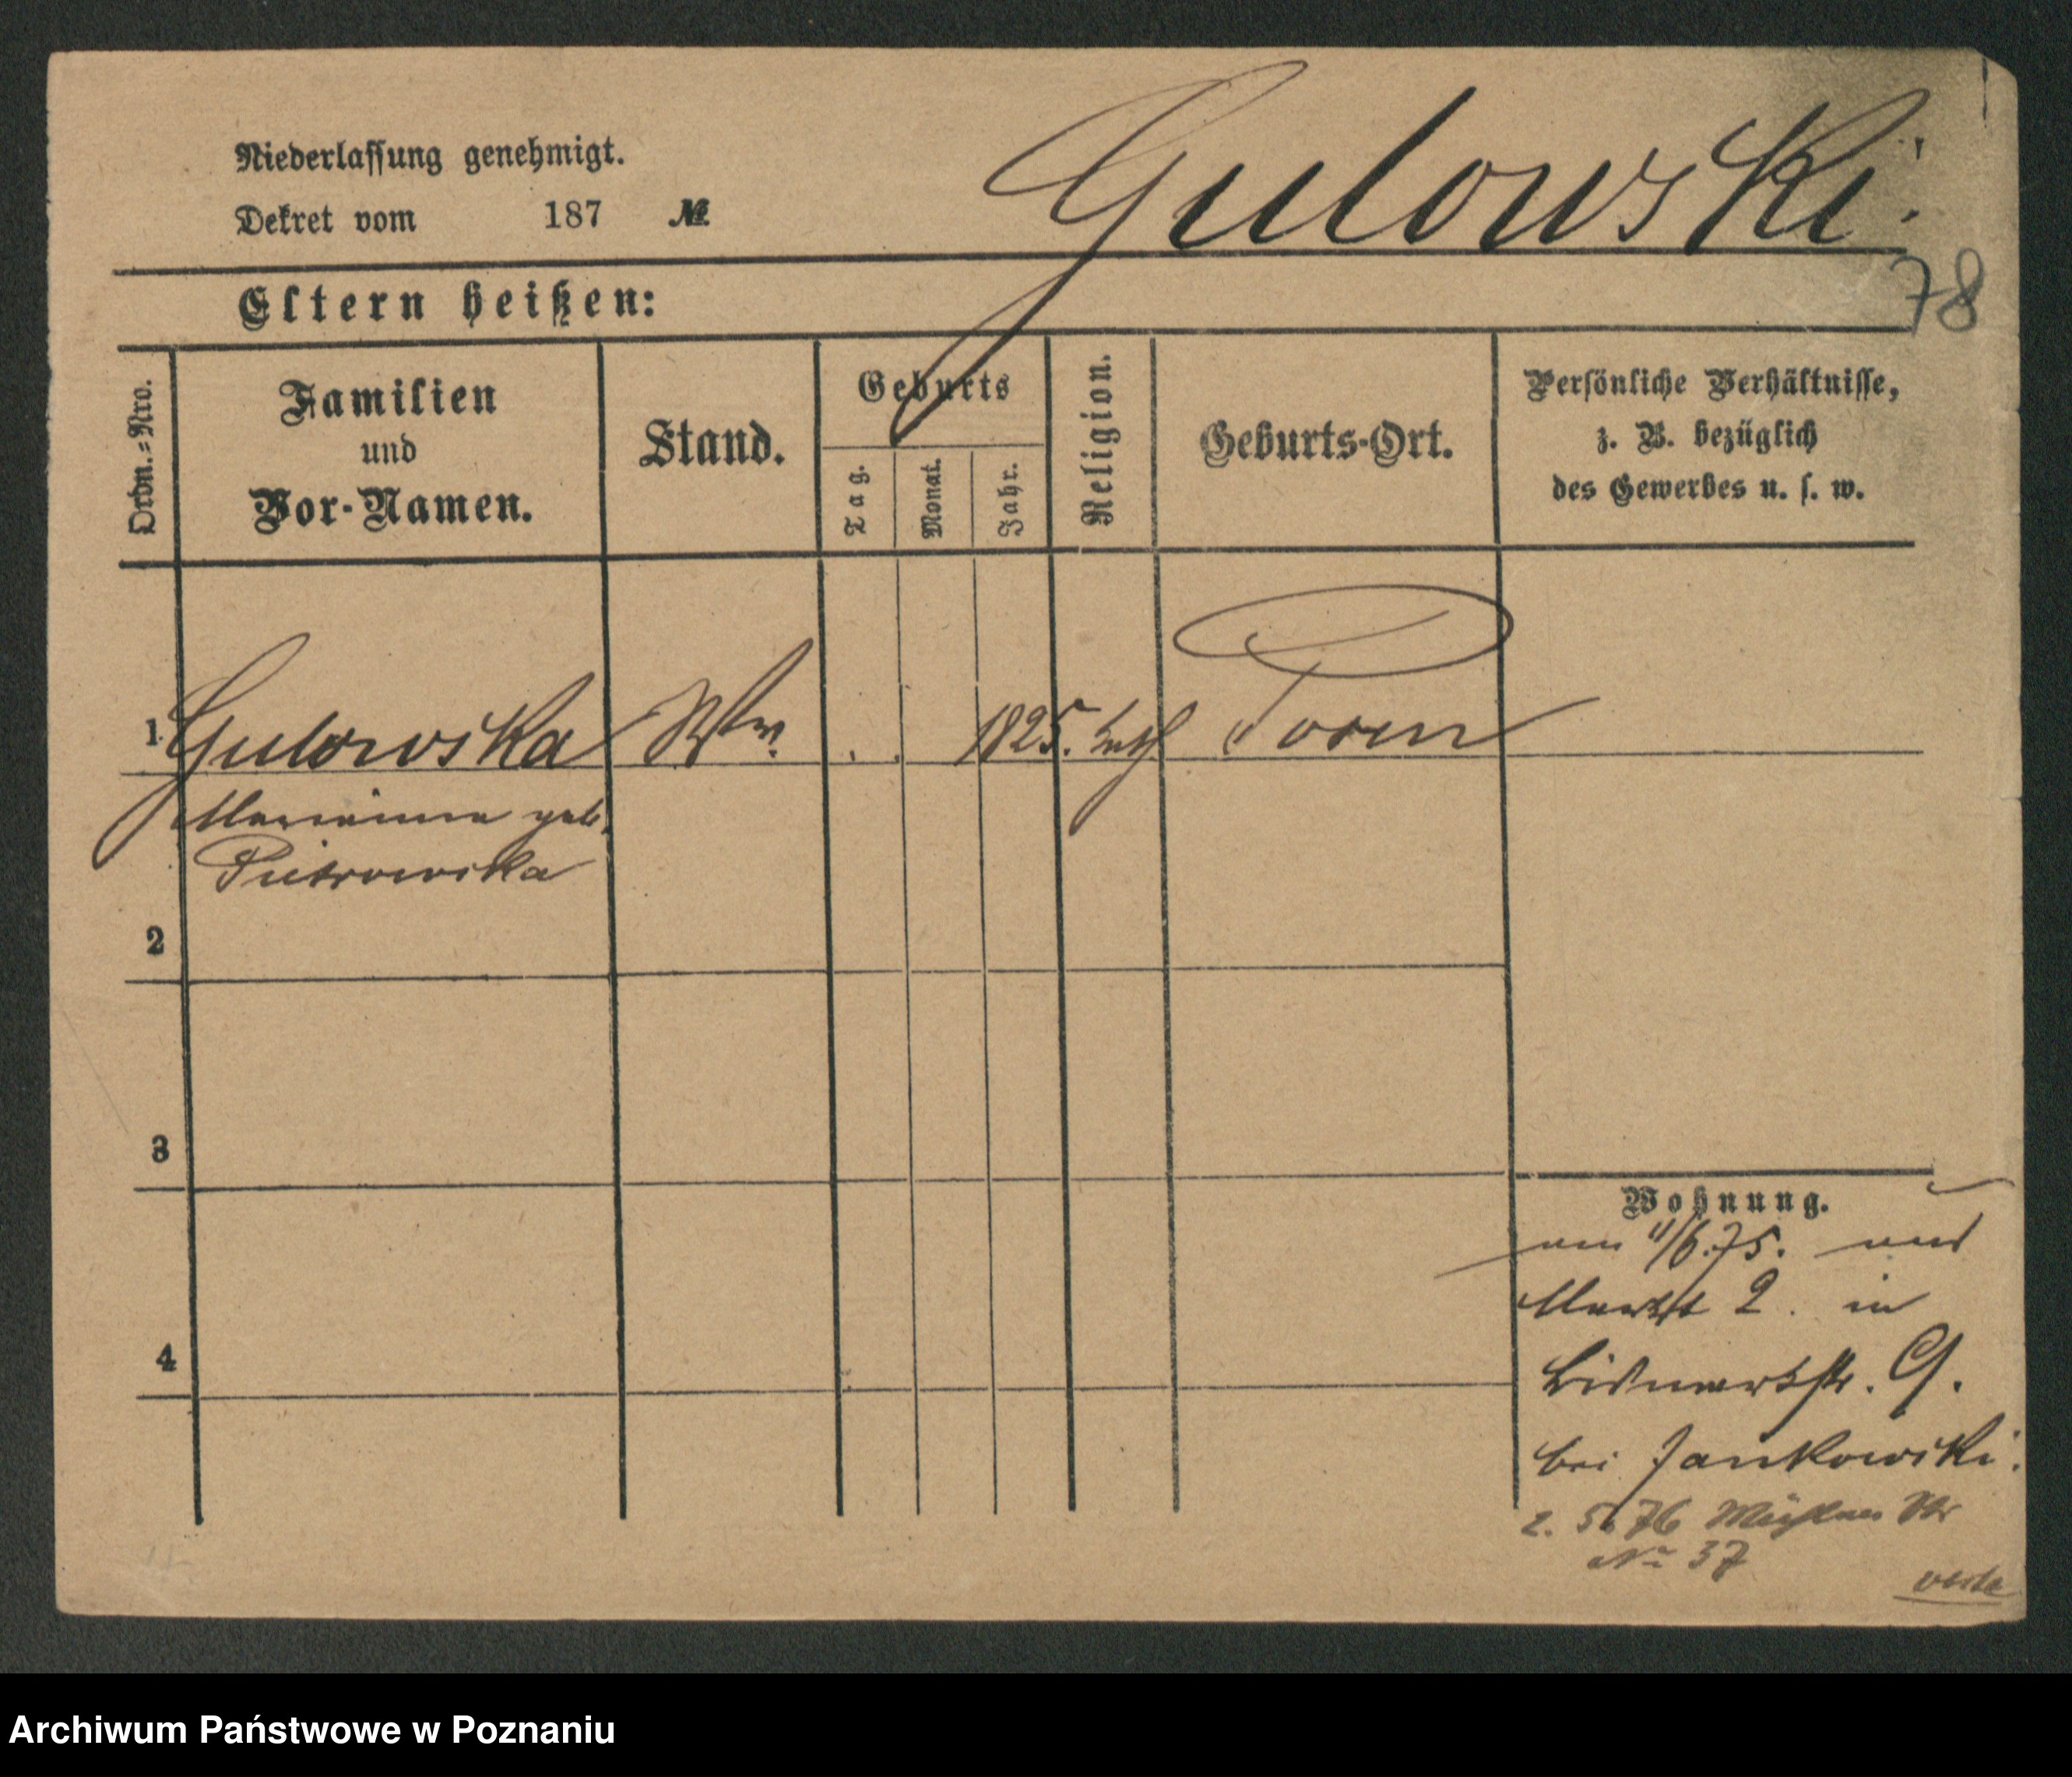 Niederlaſſung genehmigt.
Dekret vom 187 №
Gulowski.
78
Eltern heißen:
Ordn.=Nro.
Familien
und
Vor-Namen.
Stand.
Geburts
Tag.
Monat.
Jahr.
Religion.
Geburts-Ort.
Persönliche Verhältniſſe,
z. B. bezüglich
des Gewerbes u. ſ. w.
1 Gulowska Ww. . . 1825. kath Posen
Marianna geb.
Pietrowska
2
3
4
Wohnung.
am 11/6.75. aus
Markt 2. in
Bismarkstr. 9.
bei Jankowski.
2. 5. 76 Str
No 37
verte
Archiwum Państwowe w Poznaniu